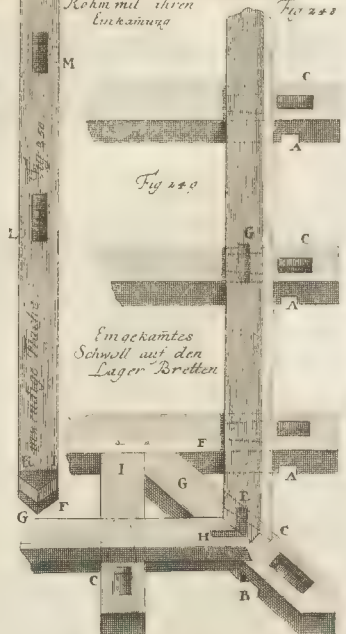 Rohm mit ihren
Einkam̄ung
Fig 248
M
C
Fig 250
A
Fig 249
L
G
C
A
Eingekam̄tes
Schwöll auf den
Lager Bretten
E
F
I
G
A
F
G
E
H
C
C
B